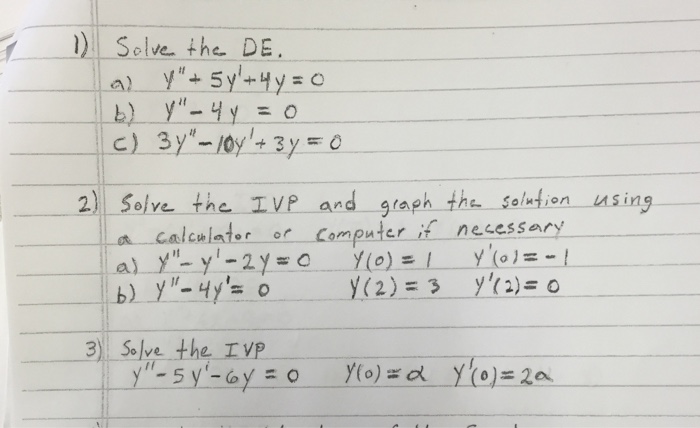 1) Solve the DE.
a) y" + 5y' + 4y = 0
b) y" - 4y = 0
c) 3y" - 10y' + 3y = 0
2) Solve the IVP and graph the solution using
a calculator or computer if necessary
a) y" - y' - 2y = 0 y(0) = 1 y'(0) = -1
b) y" - 4y' = 0 y(2) = 3 y'(2) = 0
3) Solve the IVP
y" - 5y' - 6y = 0 y(0) = α y'(0) = 2α